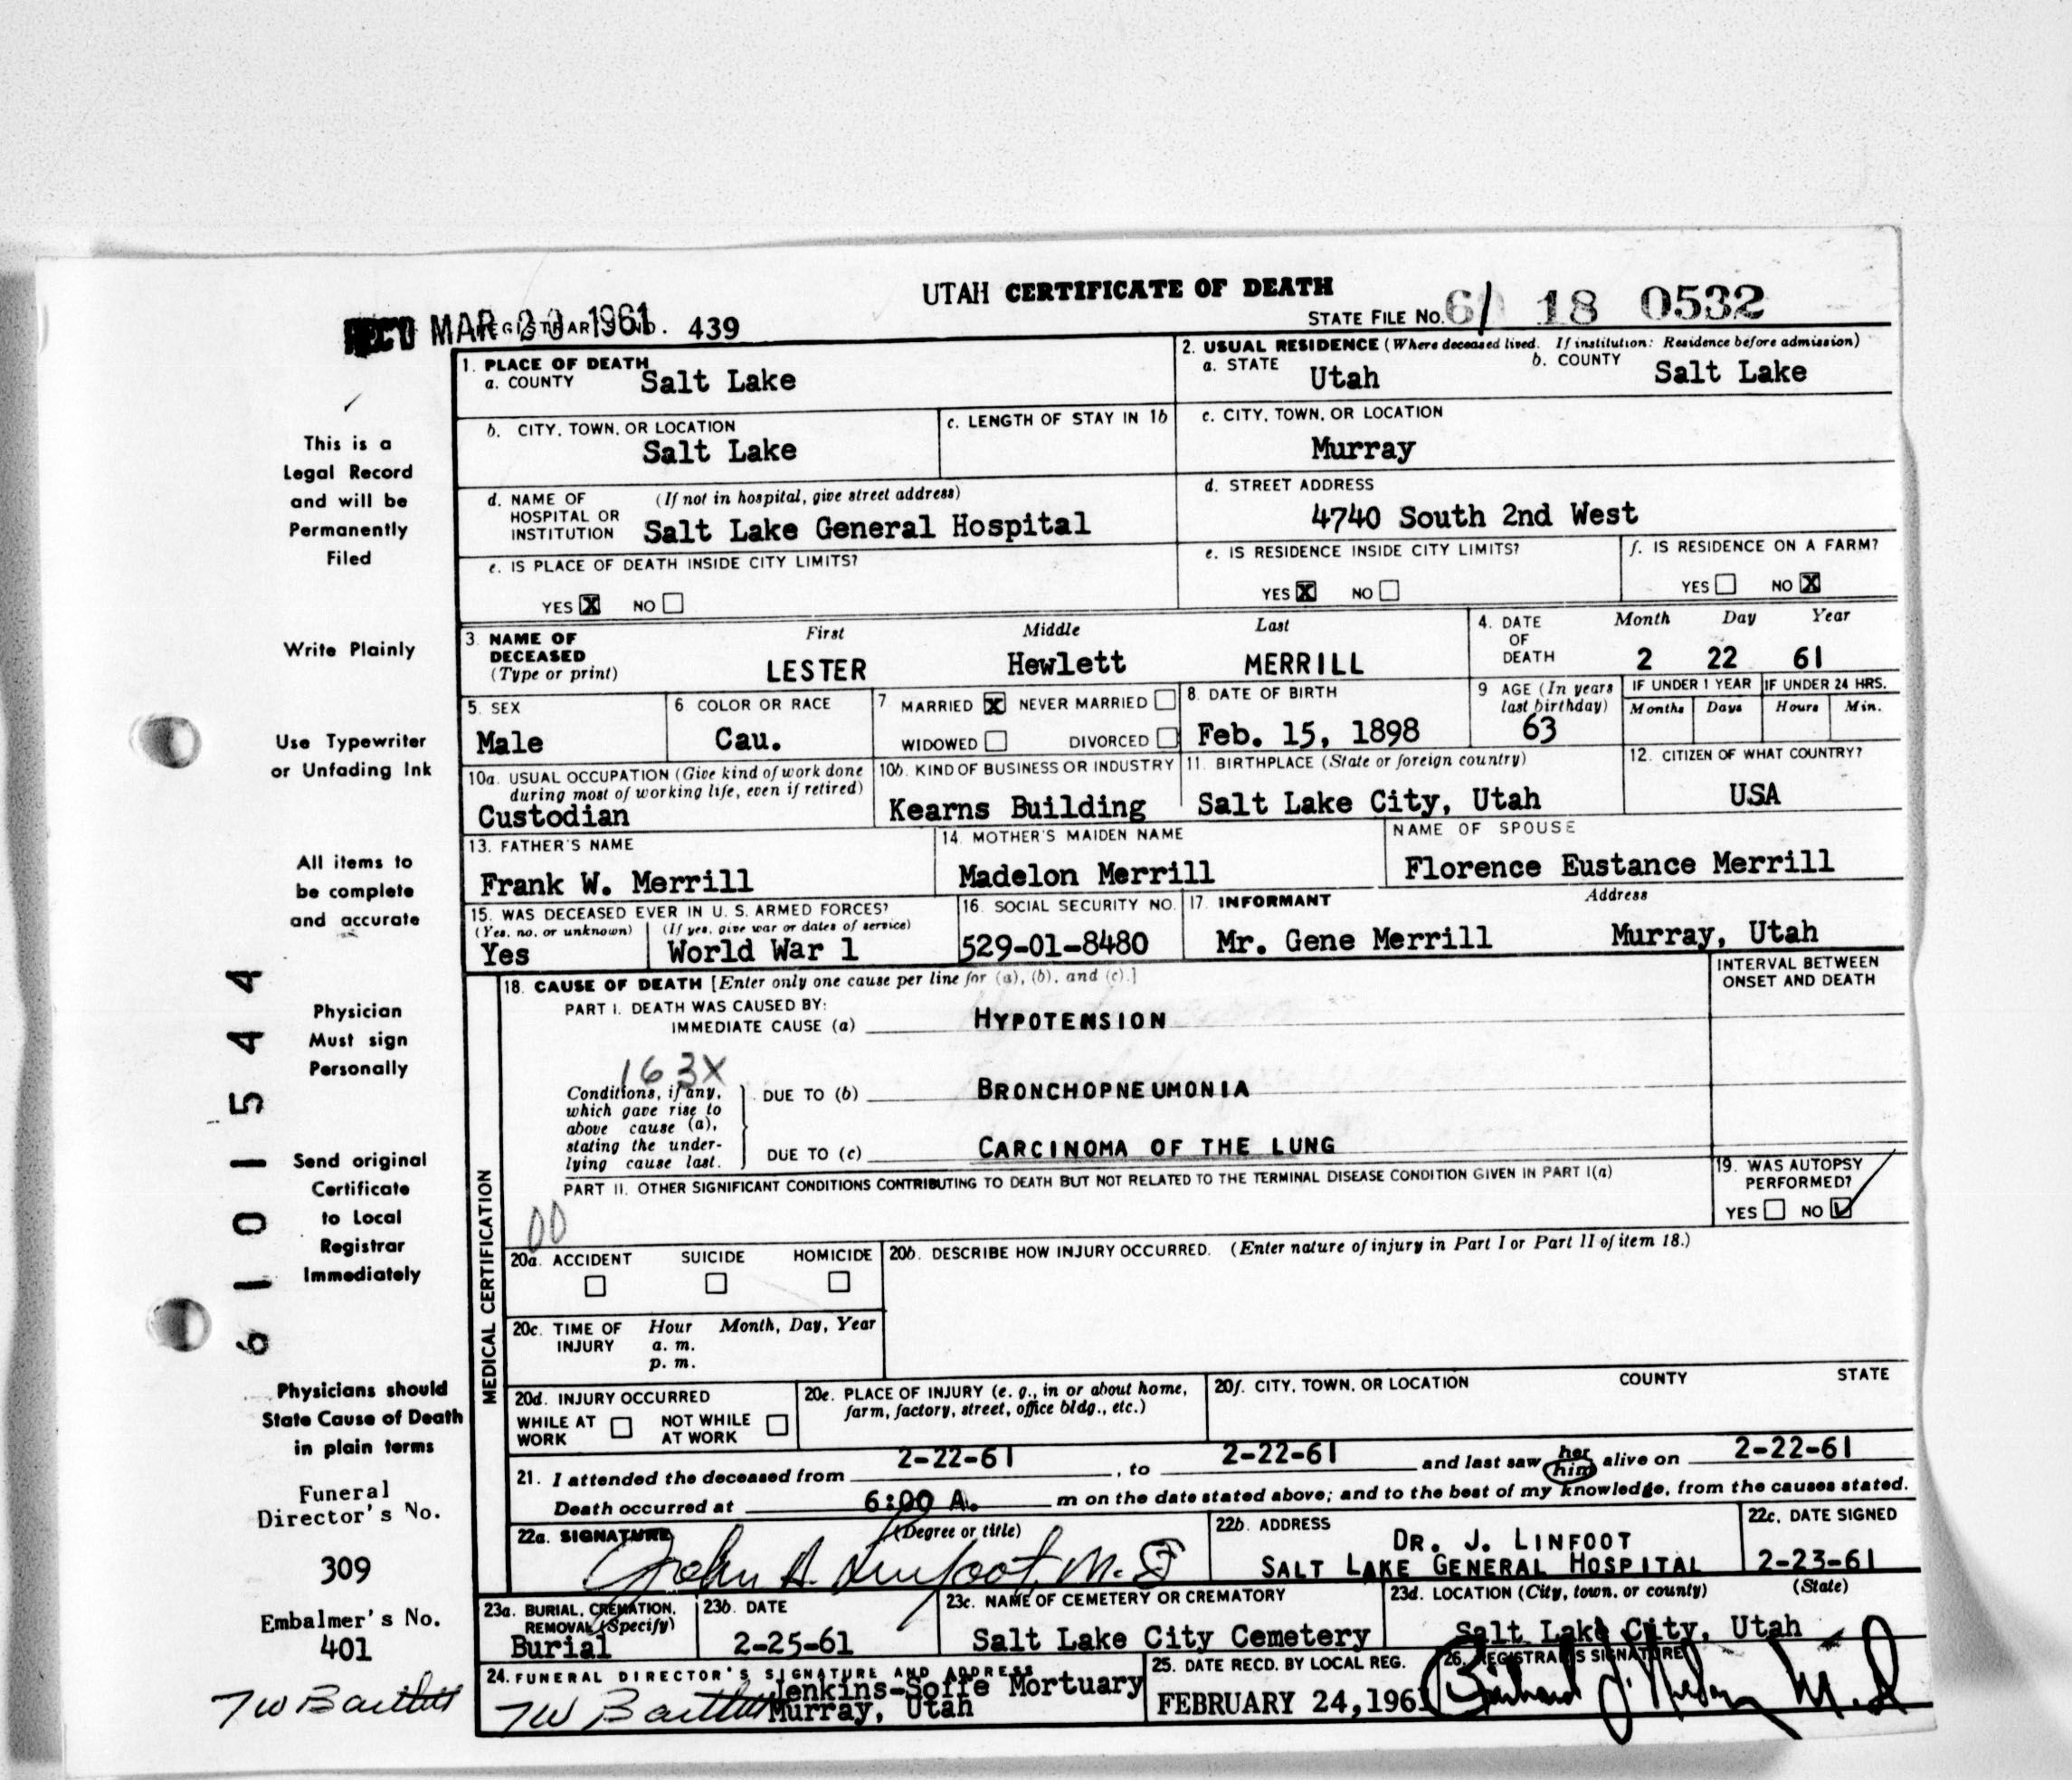 UTAH CERTIFICATE OF DEATH
REC'D MAR 20 1961 REGISTRAR'S NO. 439
STATE FILE No. 61 18 0532
1. PLACE OF DEATH
a. COUNTY Salt Lake
2. USUAL RESIDENCE (Where deceased lived. If institution: Residence before admission)
a. STATE Utah b. COUNTY Salt Lake
b. CITY, TOWN, OR LOCATION Salt Lake
c. LENGTH OF STAY IN 1b
c. CITY, TOWN, OR LOCATION
Murray
d. NAME OF HOSPITAL OR INSTITUTION (If not in hospital, give street address)
Salt Lake General Hospital
d. STREET ADDRESS
4740 South 2nd West
e. IS PLACE OF DEATH INSIDE CITY LIMITS?
YES X NO
e. IS RESIDENCE INSIDE CITY LIMITS?
YES X NO
f. IS RESIDENCE ON A FARM?
YES NO X
3. NAME OF DECEASED (Type or print)
First Middle Last
LESTER Hewlett MERRILL
4. DATE OF DEATH Month Day Year
2 22 61
5. SEX
Male
6 COLOR OR RACE
Cau.
7 MARRIED X NEVER MARRIED
WIDOWED DIVORCED
8. DATE OF BIRTH
Feb. 15, 1898
9 AGE (In years last birthday)
63
IF UNDER 1 YEAR
Months Days
IF UNDER 24 HRS.
Hours Min.
10a. USUAL OCCUPATION (Give kind of work done during most of working life, even if retired)
Custodian
10b. KIND OF BUSINESS OR INDUSTRY
Kearns Building
11. BIRTHPLACE (State or foreign country)
Salt Lake City, Utah
12. CITIZEN OF WHAT COUNTRY?
USA
13. FATHER'S NAME
Frank W. Merrill
14. MOTHER'S MAIDEN NAME
Madelon Merrill
NAME OF SPOUSE
Florence Eustance Merrill
15. WAS DECEASED EVER IN U. S. ARMED FORCES?
(Yes, no, or unknown) (If yes, give war or dates of service)
Yes World War 1
16. SOCIAL SECURITY NO.
529-01-8480
17. INFORMANT Address
Mr. Gene Merrill Murray, Utah
MEDICAL CERTIFICATION
18. CAUSE OF DEATH [Enter only one cause per line for (a), (b), and (c).]
INTERVAL BETWEEN ONSET AND DEATH
PART I. DEATH WAS CAUSED BY:
IMMEDIATE CAUSE (a) HYPOTENSION
163X
Conditions, if any, which gave rise to above cause (a), stating the underlying cause last.
DUE TO (b) BRONCHOPNEUMONIA
DUE TO (c) CARCINOMA OF THE LUNG
PART II. OTHER SIGNIFICANT CONDITIONS CONTRIBUTING TO DEATH BUT NOT RELATED TO THE TERMINAL DISEASE CONDITION GIVEN IN PART I(a)
00
19. WAS AUTOPSY PERFORMED?
YES NO ✓
20a. ACCIDENT SUICIDE HOMICIDE
20b. DESCRIBE HOW INJURY OCCURRED. (Enter nature of injury in Part I or Part II of item 18.)
20c. TIME OF INJURY Hour Month, Day, Year
a. m.
p. m.
20d. INJURY OCCURRED
WHILE AT WORK NOT WHILE AT WORK
20e. PLACE OF INJURY (e. g., in or about home, farm, factory, street, office bldg., etc.)
20f. CITY, TOWN, OR LOCATION COUNTY STATE
21. I attended the deceased from 2-22-61, to 2-22-61 and last saw her him alive on 2-22-61
Death occurred at 6:00 A. m on the date stated above; and to the best of my knowledge, from the causes stated.
22a. SIGNATURE (Degree or title)
John A. Linfoot, M.D.
22b. ADDRESS
DR. J. LINFOOT
SALT LAKE GENERAL HOSPITAL
22c. DATE SIGNED
2-23-61
23a. BURIAL, CREMATION, REMOVAL (Specify)
Burial
23b. DATE
2-25-61
23c. NAME OF CEMETERY OR CREMATORY
Salt Lake City Cemetery
23d. LOCATION (City, town, or county) (State)
Salt Lake City, Utah
24. FUNERAL DIRECTOR'S SIGNATURE AND ADDRESS
TW Jenkins-Soffe Mortuary
Murray, Utah
25. DATE RECD. BY LOCAL REG.
FEBRUARY 24, 1961
26. REGISTRAR'S SIGNATURE
M.D
This is a
Legal Record
and will be
Permanently
Filed
Write Plainly
Use Typewriter
or Unfading Ink
All items to
be complete
and accurate
Physician
Must sign
Personally
Send original
Certificate
to Local
Registrar
Immediately
Physicians should
State Cause of Death
in plain terms
Funeral
Director's No.
309
Embalmer's No.
401
TW
6101544